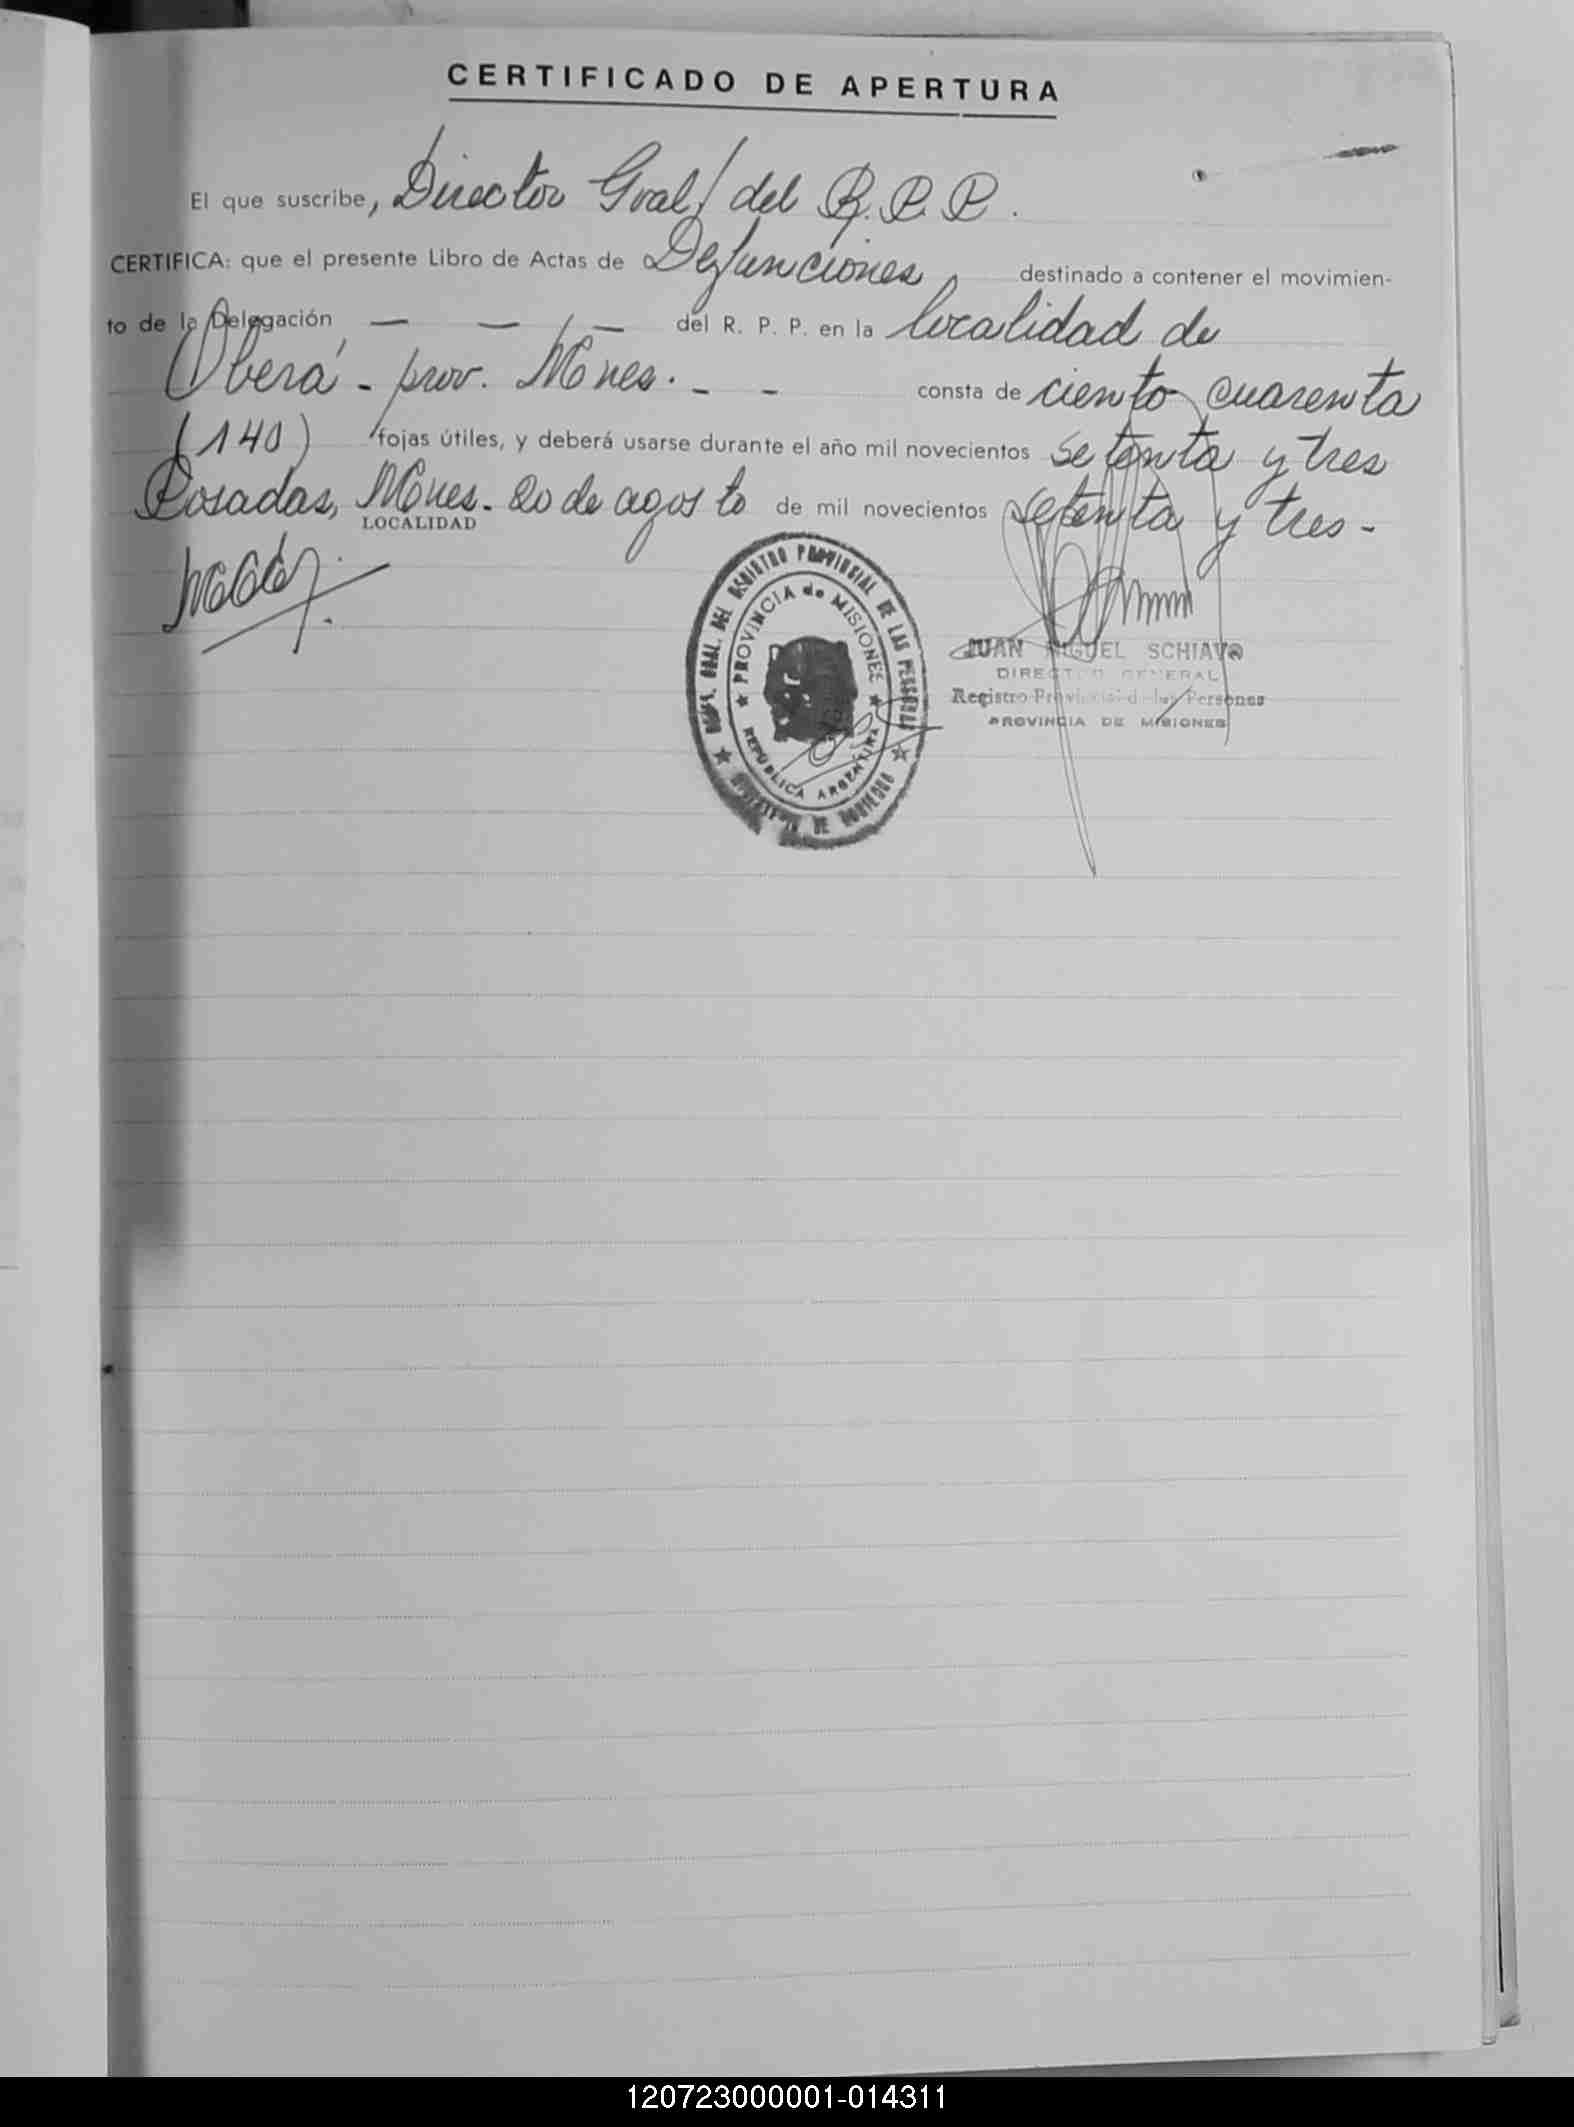 CERTIFICADO DE APERTURA
El que suscribe, Director Gral/ del R.P.P.
CERTIFICA: que el presente Libro de Actas de Defunciones, destinado a contener el movimien-
to de la Delegación — — / — del R. P. P. en la localidad de
Oberá - prov. Mnes. - - consta de ciento cuarenta
(140) fojas útiles, y deberá usarse durante el año mil novecientos setenta y tres
Posadas, Mnes. 20 de agosto de mil novecientos setenta y tres -
LOCALIDAD
GRAL. DEL REGISTRO PROVINCIAL DE LAS PERSONAS
★ PROVINCIA de MISIONES ★
REPUBLICA ARGENTINA
★ MINISTERIO DE GOBIERNO ★
JUAN MIGUEL SCHIAVO
DIRECTOR GENERAL
Registro Provincial de las Personas
PROVINCIA DE MISIONES
120723000001-014311